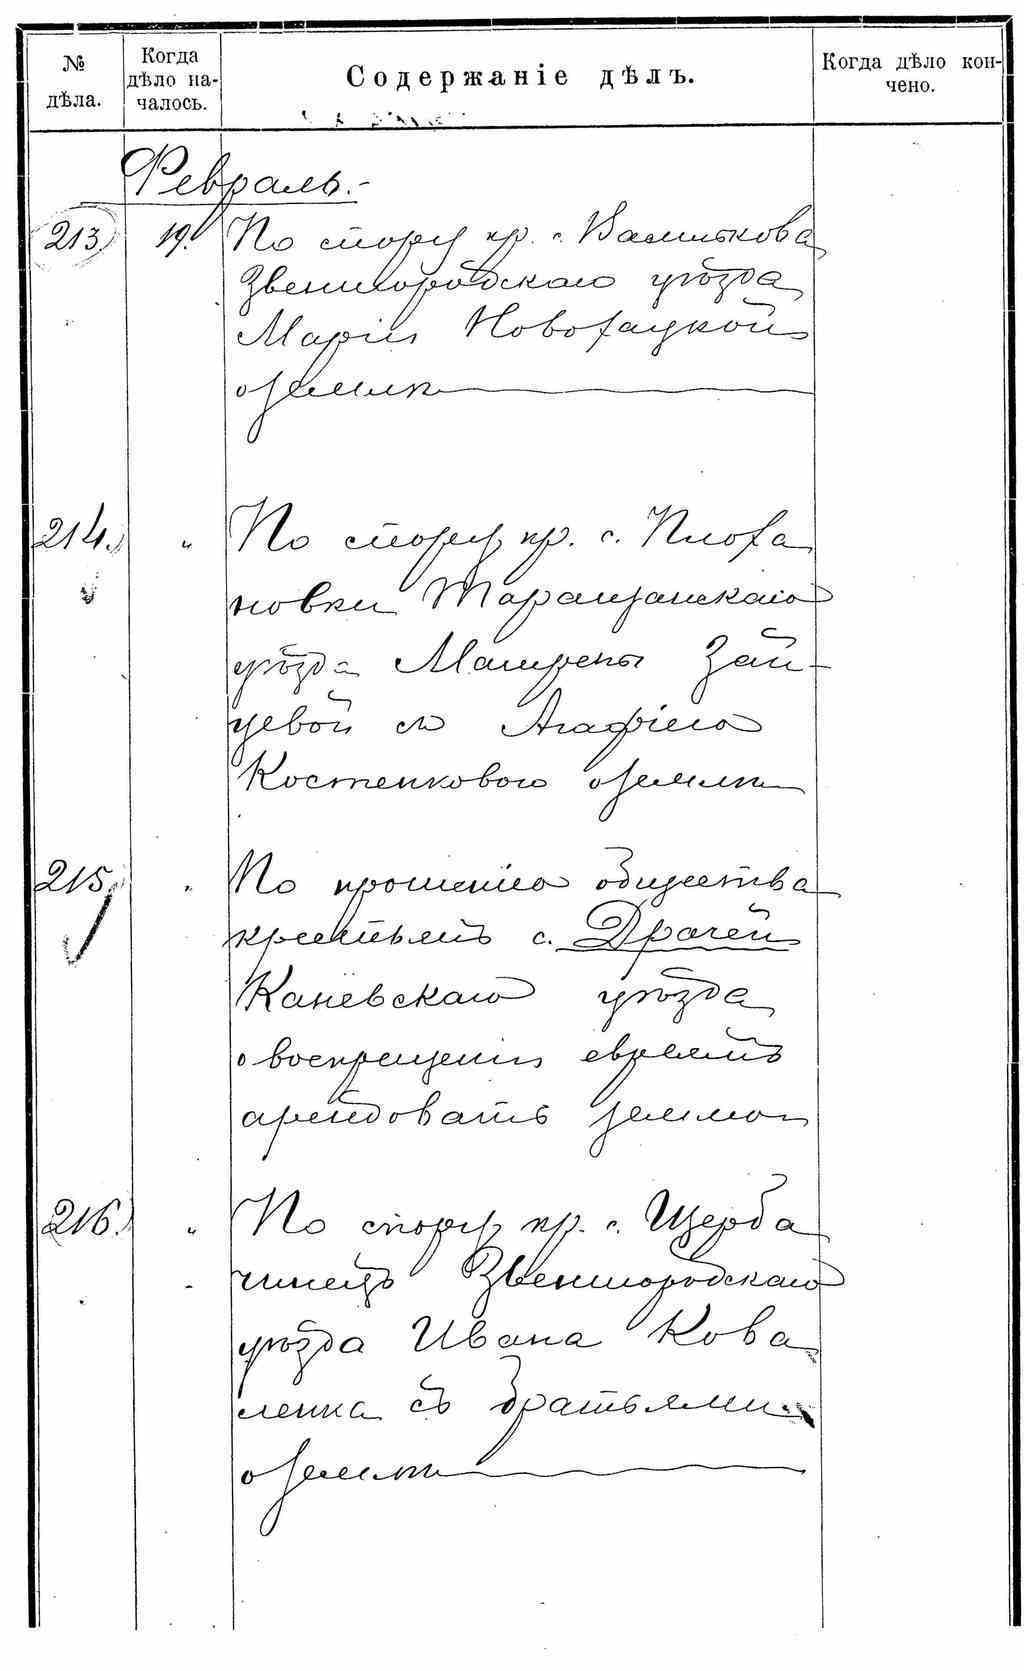 № дѣла.
Когда дѣло на-
чалось.
Содержаніе дѣлъ.
Когда дѣло кон-
чено.
Февраль.-
213. 19. По спору кр. с. Василькова
Звенигородскаго уѣзда
Маріи Новохацкой
о землѣ
214. " По спору кр. с. Плоха
новки Таращанскаго
уѣзда Матрены Зай-
цевой съ Агафіею
Костенковою о землѣ
215. " По прошенію общества
крестьянъ с. Драчей
Каневскаго уѣзда
о воспрещеніи евреямъ
арендовать землю
216. " По спору кр. с. Щерба
чинецъ Звенигородскаго
уѣзда Ивана Кова
ленка съ братьями
о землѣ